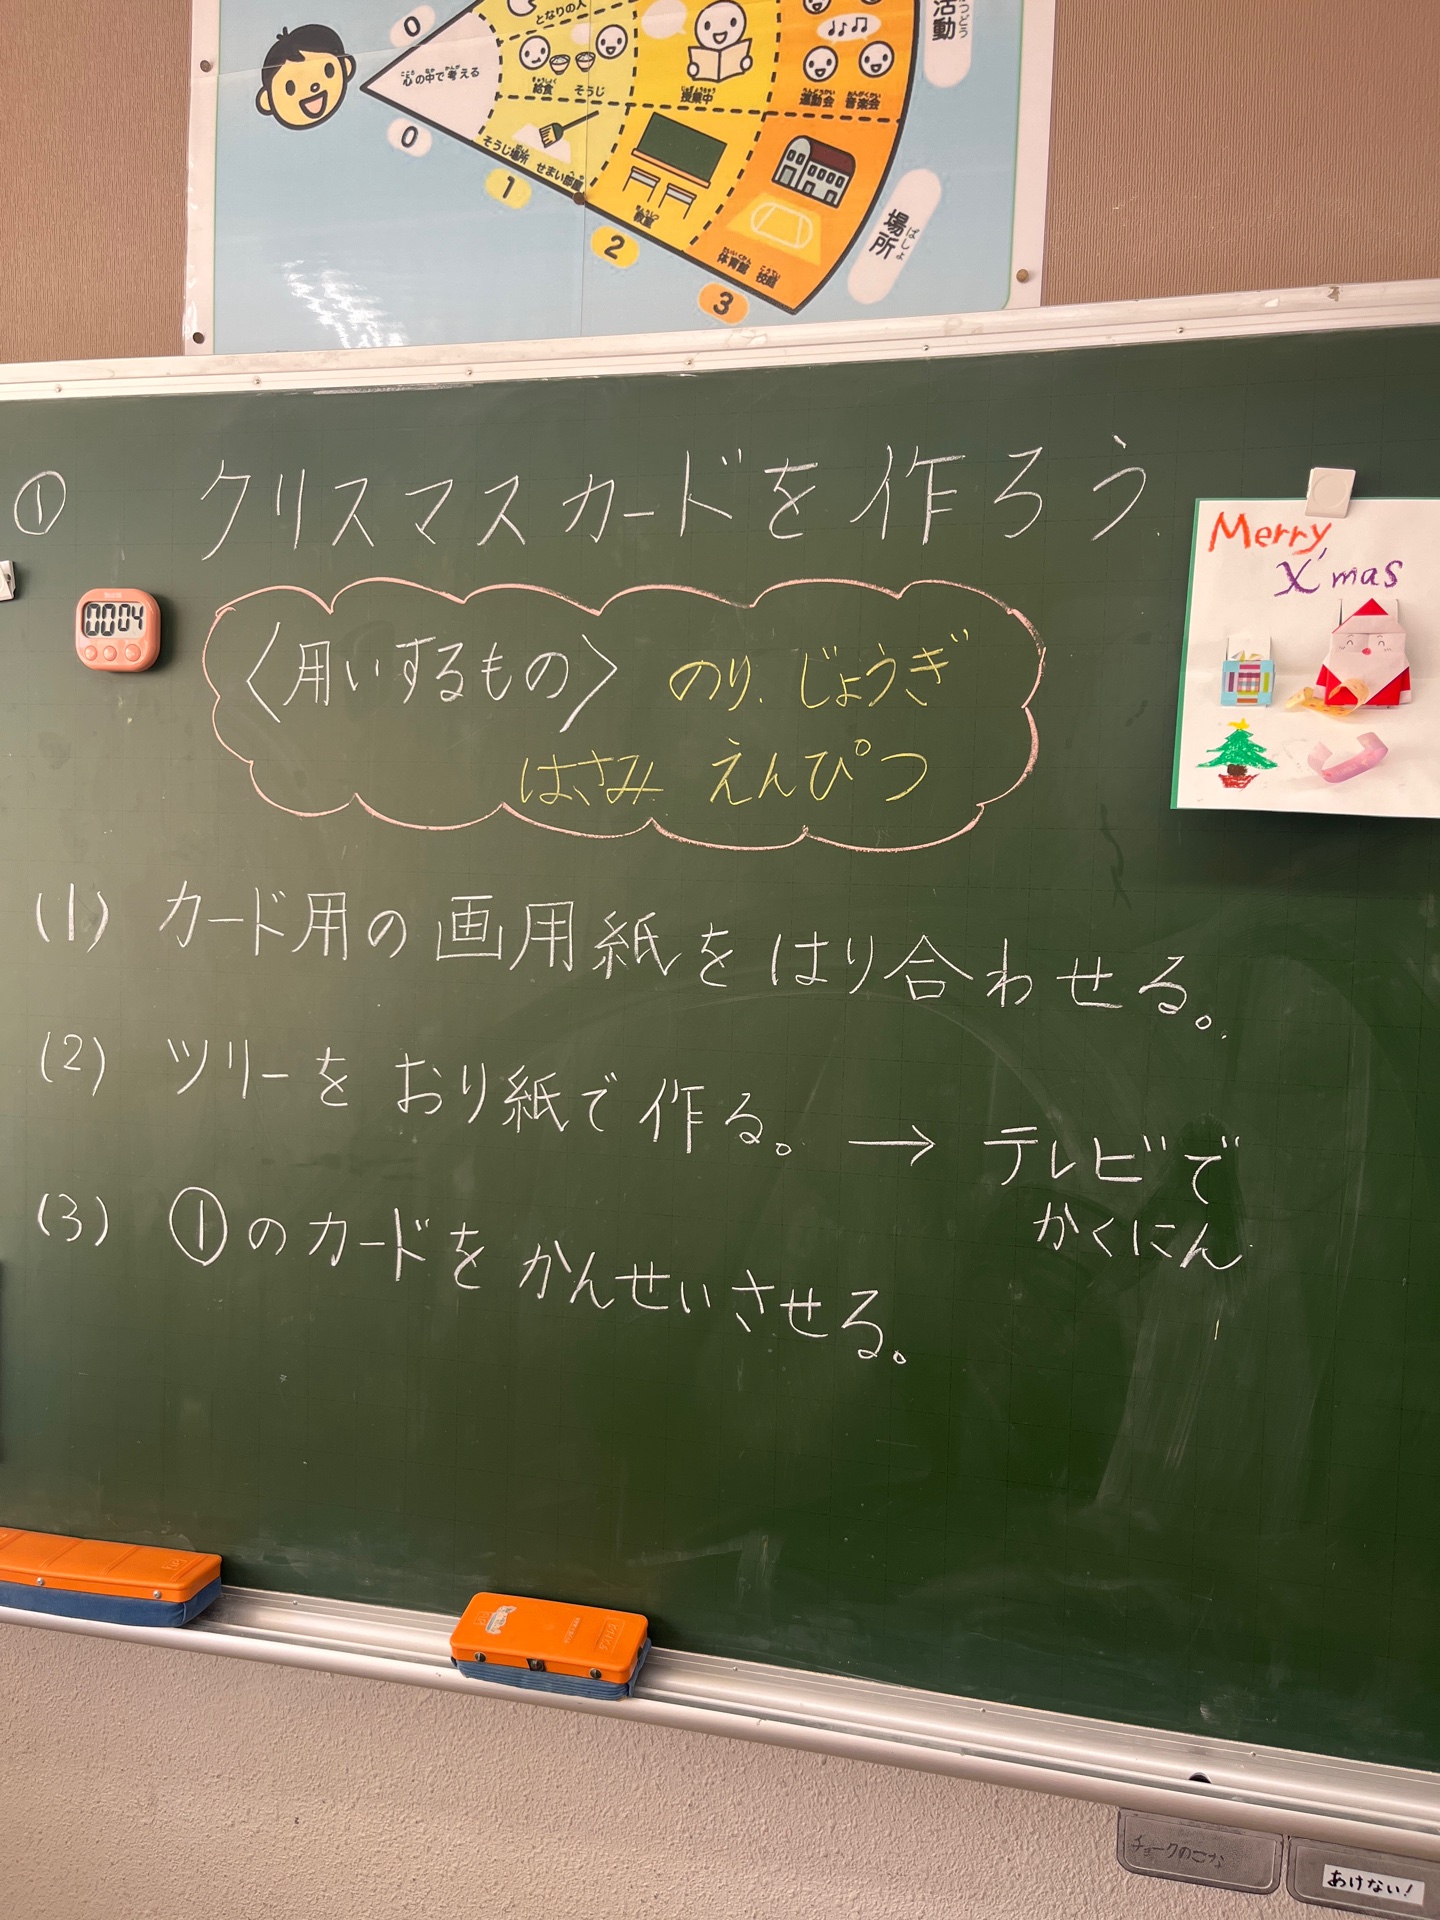 となりの人
0
心の中で考える
給食 そうじ
授業中
運動会 音楽会
活動
0
そうじ場所 せまい部屋
教室
体育館 校庭
場所
1
2
3
① クリスマスカードを作ろう
00 04
〈用いするもの〉 のり. じょうぎ
はさみ えんぴつ
Merry
X'mas
(1) カード用の画用紙をはり合わせる。
(2) ツリーをおり紙で作る。 → テレビで
かくにん
(3) ①のカードをかんせいさせる。
チョークのこな
あけない!